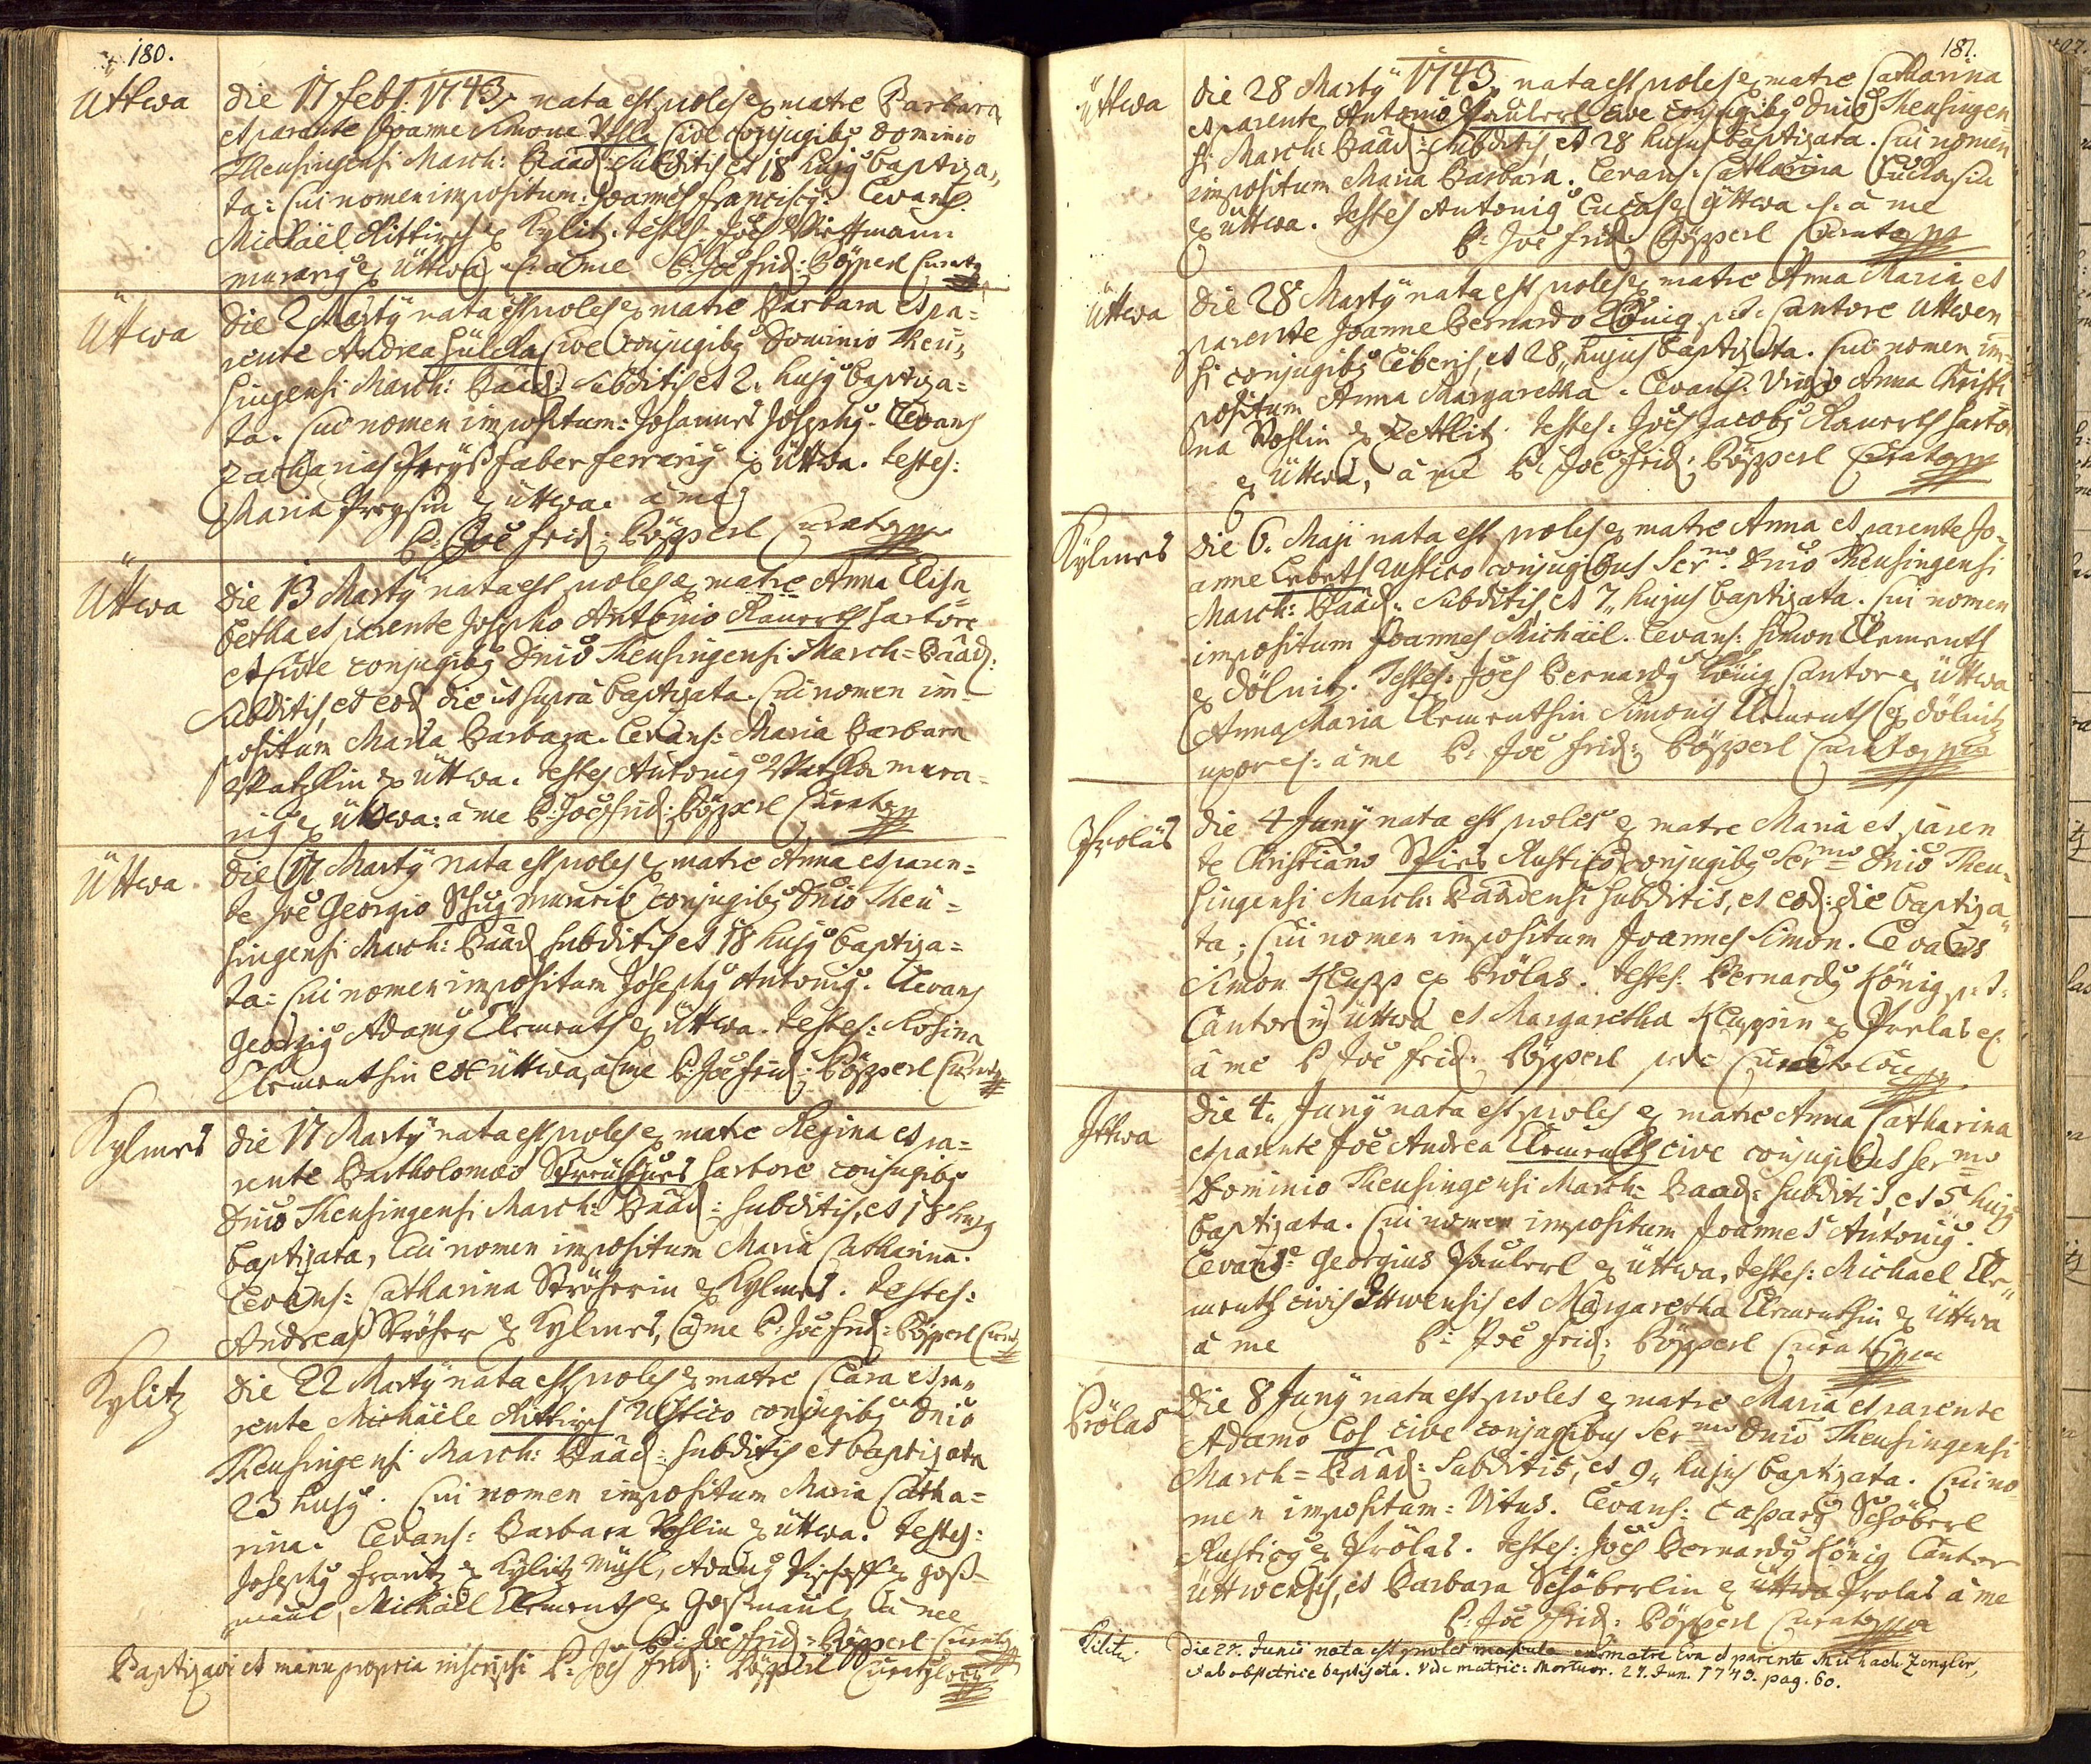 180.
Üttwa
die 17 febr: 1743, nata est proles ex matre Barbara
et parente Joanne Simone cive conjugibg Dominio
Theusingensi March: Baad: subditis et 18 hujg baptiza,,
ta: Cui nomen impositum: Joannes Franciscg. Levans
Michäel Rittirsch ex Kylitz. testes Joes
murarig ex Üttwa, a me P: Joe Frid: Pöpperl Curatg
Üttwa
die 2 Martÿ nata est proles ex matre Barbara et pa=
rente Andrea Cive conjugibg Dominio Theu=
singensi March: Baad: Subditis et 2. hujg baptiza=
ta. Cui nomen impositum: Johannes Josephg. Levans
Zacharias Preÿß faber ferrarig ex Üttwa. testes:
Maria Preysin ex üttwa. a me
P: Joe Frid: Pöpperl Curatg
Üttwa
die 13 Martÿ nata est proles ex matre Anna Elisa=
betha et parente Josepho Antonio sartore
et Cive conjugibg Dnio Theusingensi March=Baad:
subditis, et eod die ut supra baptizata. Cui nomen im=
positum Maria Barbara. Levans: Maria Barbara
ex üttwa. testes Antonig mura=
rig ex üttwa: a me P: Joe Frid: Pöpperl Curatg
Üttwa.
die 17 Martÿ nata est proles ex matre Anna et paren=
te Joe Georgio Schug murario conjugibg Dnio Theu=
singensi March: Baad subditis et 18 hujg baptiza=
ta: Cui nomen impositum Josephg Antonig. Levans
Georgig Adamg Clementh ex üttwa. testes: Rosina
Clementhin ex üttwa, a me P: Joe Frid: Pöpperl Curatg
Kylmes
die 17 Martÿ nata est proles ex matre Regina et pa=
rente Bartholomæo sartore conjugibg
Dnio Theusingensi March: Baad: subditis, et 18 hujg
baptizata, Cui nomen impositum Maria Catharina.
Levans: Catharina Ströherin ex Kylmes. testes:
Andreas Ströher ex Kylmes, a me P: Joe Frid: Pöpperl Curatg
Kylitz
die 22 Martÿ nata est proles ex matre Clara et pa,,
rente Michäele Rittirsch rustico conjugibg Dnio
Theusingensi March: Baad: subditis et baptizata
23 hujg. Cui nomen impositum Maria Catha=
rina. Levans: Barbara ex üttwa. testes:
Josephg Frantz ex Kylitz Mühl, Adamg ex Goß=
maul, Michäel Clementh ex Goßmaul, a me
P: Joe Frid: Pöpperl Curatg
Baptizavi et manu propria inscripsi P: Joes Frid: Pöpperl Curatg
181.
Üttwa
die 28 Martÿ 1743, nata est proles ex matre Catharina
et parente Antonio Paulerl cive conjugibg Dnio Theusingen=
si March: Baad: subditis, et 28 hujus baptizata. Cui nomen
impositum Maria Barbara. Levans: Catharina
ex üttwa. testes Antonig Lucas ex Üttwa a me
P: Joe Frid: Pöpperl Curatg
Üttwa
die 28 Martÿ nata est proles ex matre Anna Maria et
parente Joanne Bernardo König p:t: Cantore Uttwen
si conjugibg liberis, et 28,, hujus baptizata. Cui nomen im=
positum Anna Margaretha. Levans: Anna Christi
na ex Zettlitz. testes: Joes Jacobg sartor
ex Üttwa, a me P: Joe Frid: Pöpperl Curatg
Kÿlmes
die 6. Maji nata est proles ex matre Anna et parente Jo=
anne rustico conjugibus Ser:mo Dnio Theusingensi
March: Baad: subditis, et 7,, hujus baptizata. Cui nomen
impositum Joannes Michäel. Levans: Simon Clementh
ex Dölnitz. Testes: Joes Bernardg König Cantor ex üttwa
Anna Maria Clementhin Simonis Clementh ex Dölnitz
uxor: a me P: Joe Frid: Pöpperl Curatg
Prolas
die 4 Junÿ nata est proles ex matre Maria et paren
te Christiano Spies Rustico conjugibg Ser:mo Dnio Theu=
singensi March: Baadensi subditis, et eod: die baptiza,,
ta; Cui nomen impositum Joannes Simon. Levans
Simon Klupp ex Prölas. testes: Bernardg König p: t:
Cantor in Üttwa et Margaretha Kluppin ex Prolas
a me P Joe Frid: Pöpperl p.t: Curato loci
Ittwa
die 4. Junÿ nata est proles ex matre Anna Catharina
et parente Joe Andrea Clementh cive conjugibus Ser:mo
Dominio Theusingensi March: Baad: subditis, et 5 hujg
baptizata. Cui nomen impositum Joannes Antonig.
Levans: Georgius Paulerl ex üttwa, testes: Michael Cle,,
menth civis Ittwensis et Margaretha Clementhin ex Üttwa
a me P: Joe Frid: Pöpperl Curatg
Prölas
die 8 Junÿ nata est proles ex matre Maria et parente
Adamo Los cive conjugibus Ser:mo Dnio Theusingensi
March= Baad: subditis, et 9,, hujus baptizata. Cui no=
men impositum: Vitus. Levans: Casparg Schöberl
Rusticg ex Prölas. testes: Joes Bernardg König Cantor
üttwensis, et Barbara Schöberlin ex üttwa Prolas a me
P: Joe Frid: Pöpperl Curatg
Kilitz.
Die 27. Junii nata est proles mascula ex matre Eva et parente Michaele Zengler,
et ab obstetrice baptizata. Vide matric: Mortuor. 27. Jun. 1743. pag. 60.